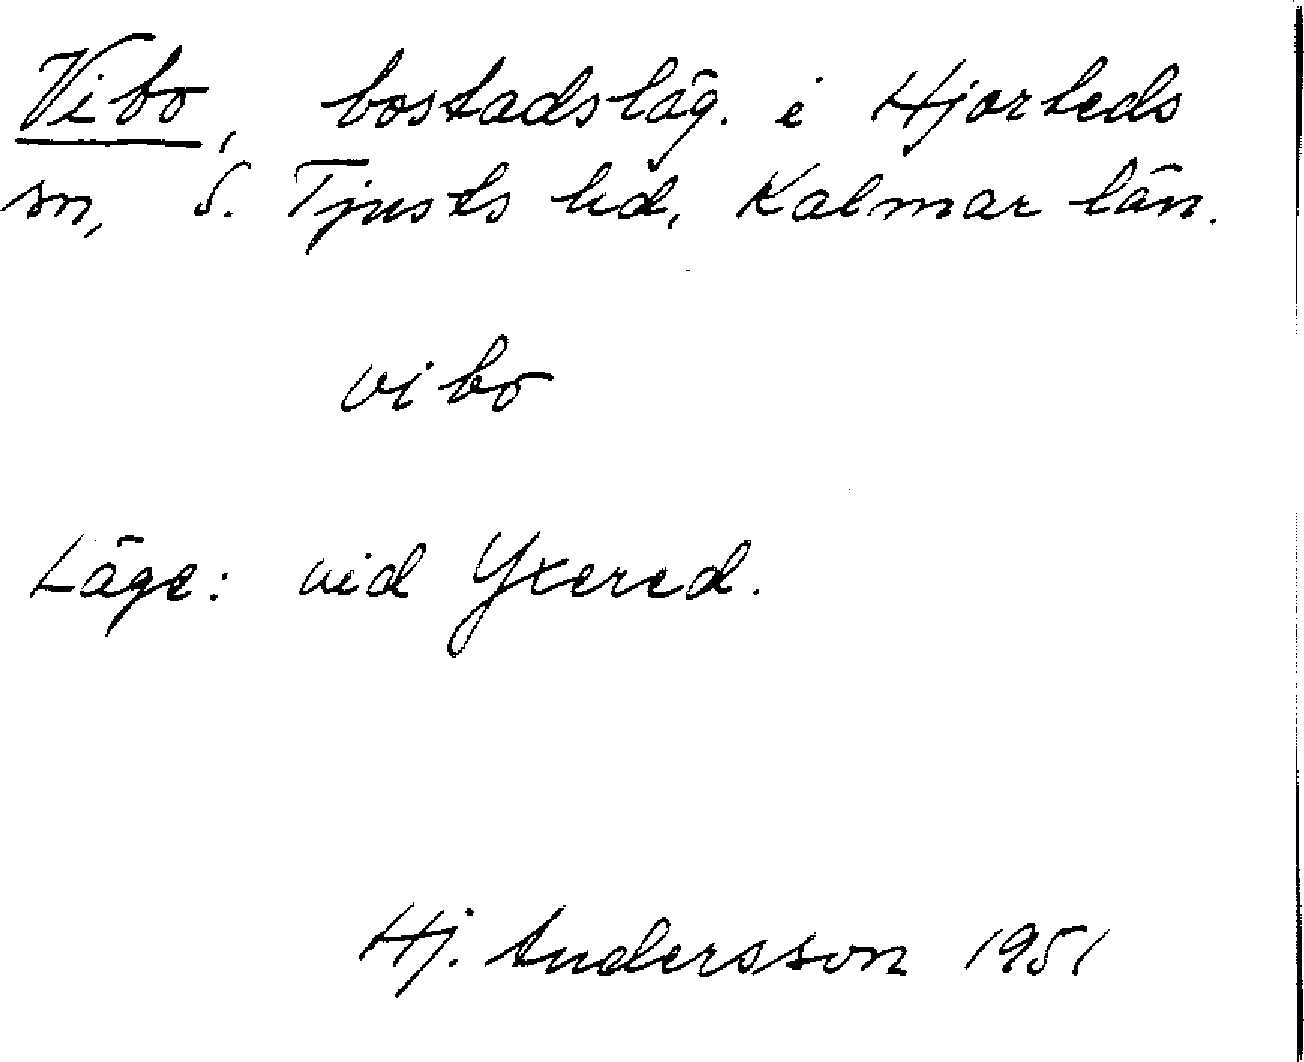 Vibo, bostadsläg. i Hjorteds
sn, S. Tjusts hd, Kalmar län.
vibo
Läge: vid Yxered.
Hj. Andersson 1951